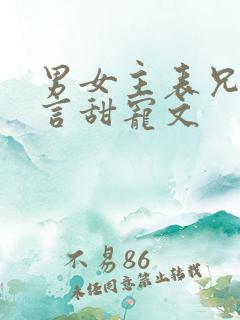 男女主表兄
言甜宠文
不易86
未经同意禁止转载